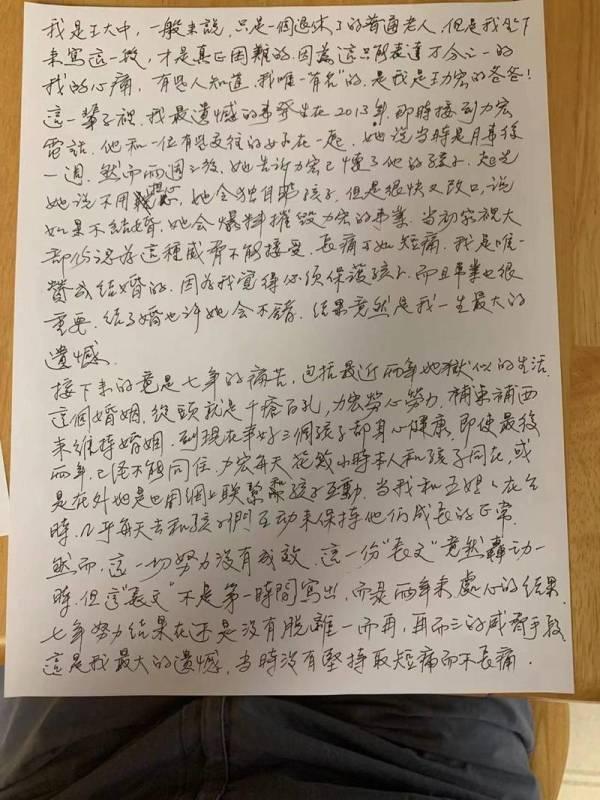 我是王大中，一般來說，只是一個退休了的普通老人，但是我坐下
來寫這一段，才是真正困難的，因為這只能表達万分之一的
我的心痛，有些人知道，我唯一"有名"的，是我是王力宏的爸爸！
這一輩子裡，我最遺憾的事發生在2013年，即時接到力宏
電話，他和一位有些交往的女子在一起，她說當時是月事後
一週，然而兩週之後，她告訴力宏已懷了他的孩子，起先
她說不用擔心，她会獨自養孩子，但是很快又改口，說
如果不結婚，她会爆料摧毀力宏的事業，當初家裡大
部份認為這種威脅不能接受，長痛不如短痛，我是唯一
贊成結婚的，因為我覺得必須保護孩子，而且事業也很
重要，結了婚也许她会不錯，結果竟然是我一生最大的
遺憾．
接下來的竟是七年的痛苦，包括最近兩年地獄似的生活．
這個婚姻，從頭就是千瘡百孔，力宏勞心勞力，補東補西
來維持婚姻，到現在幸好三個孩子都身心健康，即使最後
兩年，已經不能同住，力宏每天花數小時本人和孩子同在，或
是在外地是也用網上联繫和孩子互動，當我和王媽媽在台
時，几乎每天去和孩子們互动來保持他们成長的正常．
然而，這一切努力沒有成效，這一份"長文"竟然轟动一
時，但這"長文"不是第一時間寫出，而是兩年來處心的結果，
七年努力結果在还是沒有脫離一而再，再而三的威脅手段
這是我最大的遺憾，當時沒有堅持取短痛而不長痛．